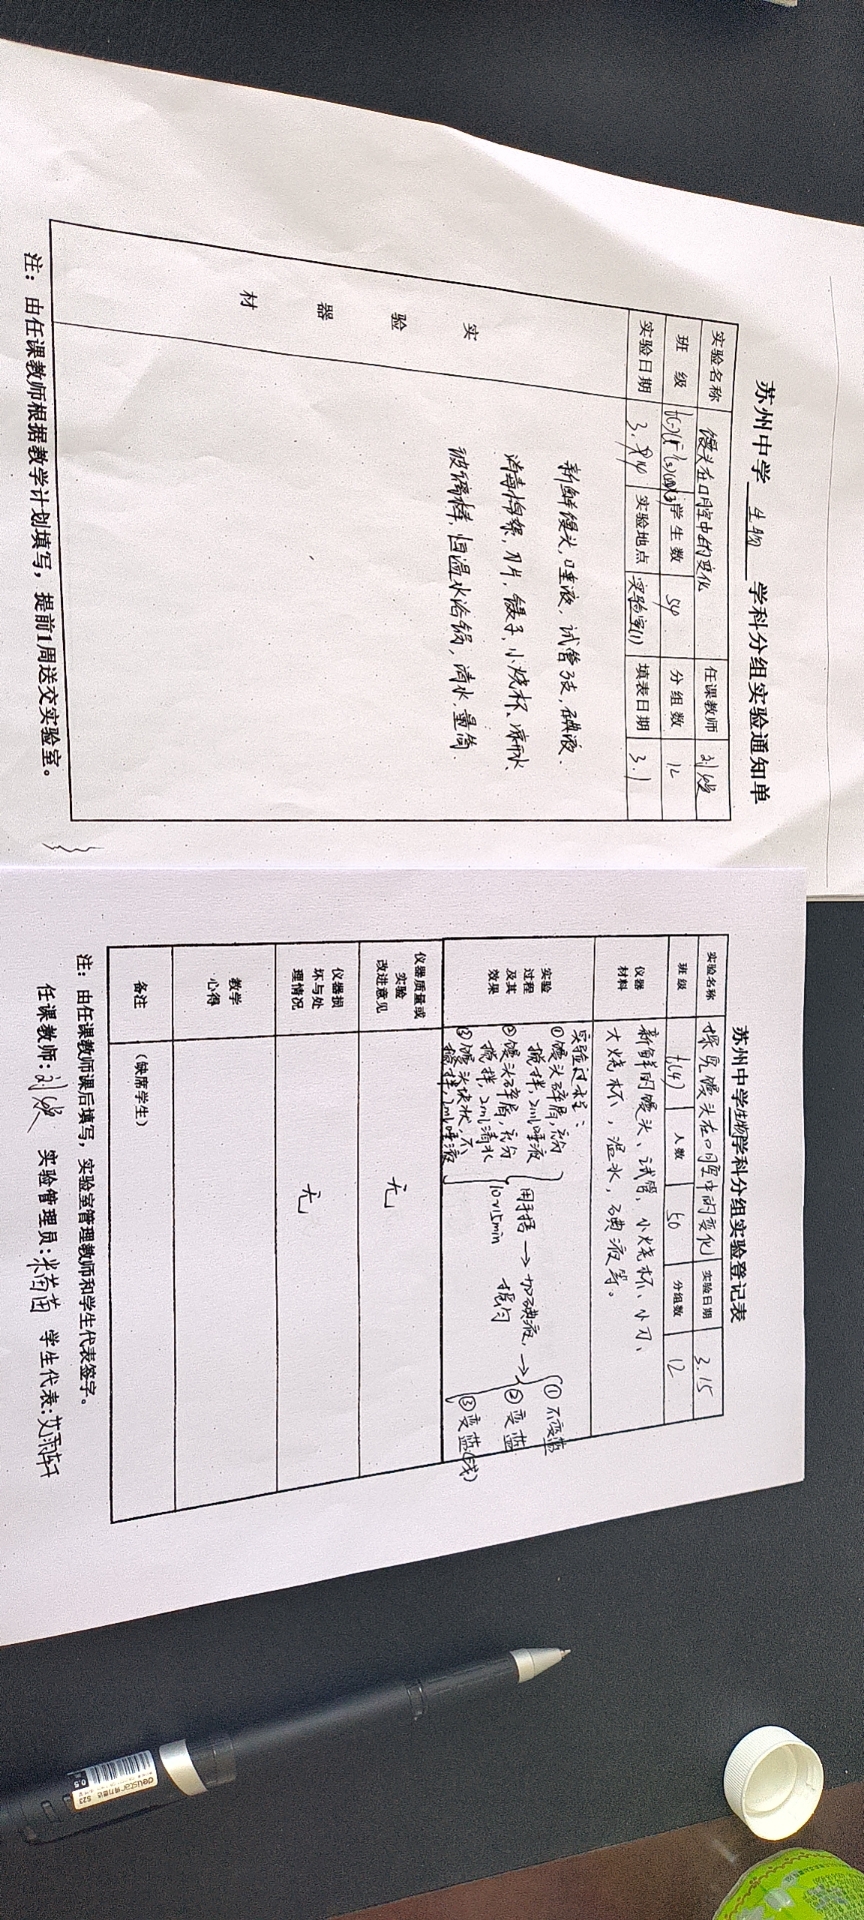 苏州中学 生物 学科分组实验通知单
实验名称 馒头在口腔中的变化 任课教师 刘
班 级 学生数 54 分组数 12
实验日期 实验地点 实验室(1) 填表日期 3.1
实 验 器 材
新鲜馒头,唾液,试管3支,碘液、
消毒棉絮,刀片,镊子,小烧杯、凉开水
玻璃棒,恒温水浴锅,清水,量筒.
注:由任课教师根据教学计划填写,提前1周送交实验室。
苏州中学生物学科分组实验登记表
实验名称 探究馒头在口腔中的变化 实验日期 3.15
班级 七(4) 人数 50 分组数 12
仪器材料 新鲜的馒头、试管、小烧杯、小刀、
大烧杯,温水,碘液等。
实验过程及其效果
实验过程:
①馒头碎屑,充分
搅拌,2ml唾液
②馒头碎屑,充分
搅拌,2ml清水
③馒头块状,不
搅拌,2ml唾液
用手捂
10~15min
→加碘液,→
摇匀
①不变蓝
②变蓝
③变蓝(浅)
仪器质量或实验改进意见 无
仪器损坏与处理情况 无
教学心得
备注 (缺席学生)
注:由任课教师课后填写,实验室管理教师和学生代表签字。
任课教师:刘 实验管理员:米苗苗 学生代表:艾雨轩
deli
0.5
S23